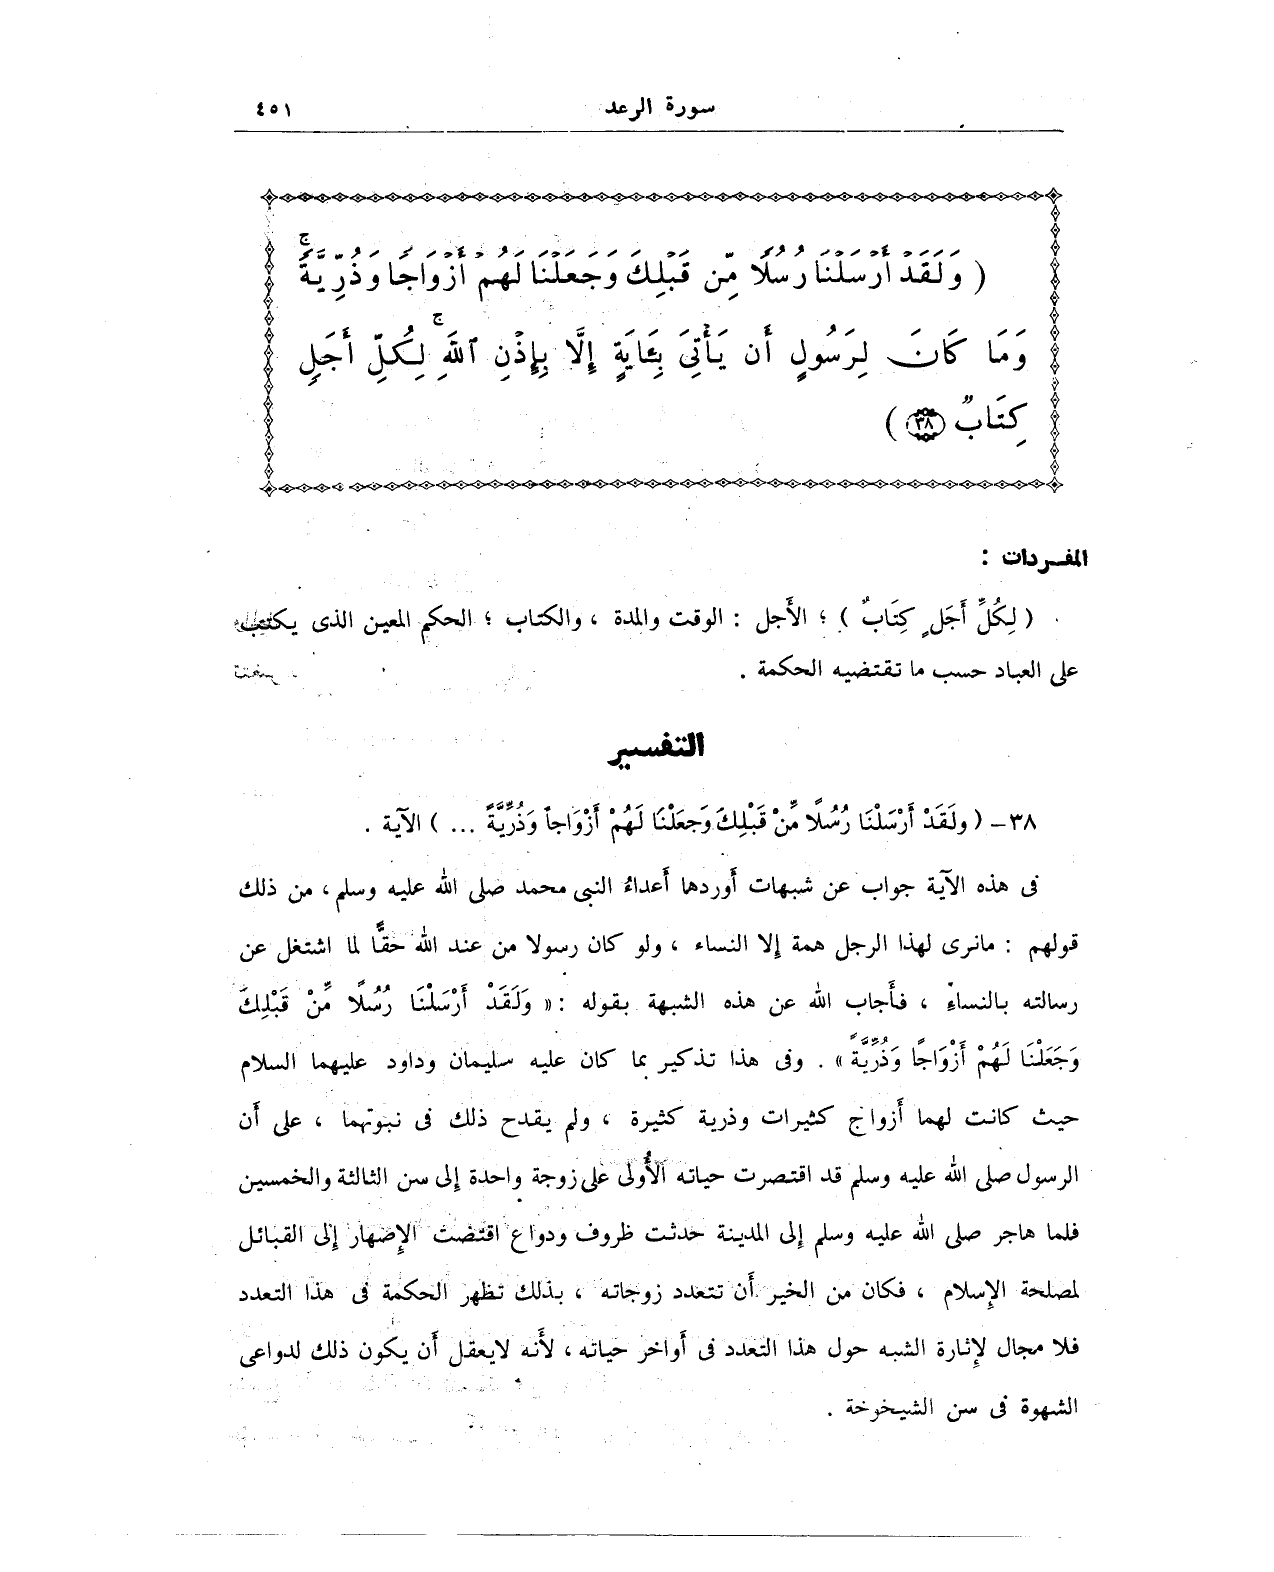 سورة الرعد ٤٥١
( وَلَقَدْ أَرْسَلْنَا رُسُلًا مِّن قَبْلِكَ وَجَعَلْنَا لَهُمْ أَزْوَاجًا وَذُرِّيَّةً ۚ
وَمَا كَانَ لِرَسُولٍ أَن يَأْتِىَ بِـَٔايَةٍ إِلَّا بِإِذْنِ ٱللَّهِ ۚ لِكُلِّ أَجَلٍ
كِتَابٌ ٣٨ )
المفـردات :
( لِكُلِّ أَجَلٍ كِتَابٌ ) ؛ الأَجل : الوقت والمدة ، والكتاب ؛ الحكم المعين الذى يكتب
على العباد حسب ما تقتضيه الحكمة .
التفسير
٣٨ – ( ولَقَدْ أَرْسَلْنَا رُسُلًا مِّنْ قَبْلِكَ وَجعَلْنَا لَهُمْ أَزْوَاجاً وَذُرِّيَّةً ... ) الآية .
فى هذه الآية جواب عن شبهات أوردها أعداءُ النبى محمد صلى الله عليه وسلم ، من ذلك
قولهم : مانرى لهذا الرجل همة إلا النساء ، ولو كان رسولا من عند الله حقًّا لما اشتغل عن
رسالته بالنساءِ ، فأَجاب الله عن هذه الشبهة بقوله : « وَلَقَدْ أَرْسَلْنَا رُسُلًا مِّنْ قَبْلِكَ
وَجَعَلْنَا لَهُمْ أَزْوَاجًا وَذُرِّيَّةً » . وفى هذا تذكير بما كان عليه سليمان وداود عليهما السلام
حيث كانت لهما أزواج كثيرات وذرية كثيرة ، ولم يقدح ذلك فى نبوتهما ، على أن
الرسول صلى الله عليه وسلم قد اقتصرت حياته الأُولى على زوجة واحدة إلى سن الثالثة والخمسين
فلما هاجر صلى الله عليه وسلم إلى المدينة حدثت ظروف ودواع اقتضت الإِصهار إلى القبائل
لمصلحة الإِسلام ، فكان من الخير أن تتعدد زوجاته ، بذلك تظهر الحكمة فى هذا التعدد
فلا مجال لإِثارة الشبه حول هذا التعدد فى أواخر حياته ، لأَنه لايعقل أن يكون ذلك لدواعى
الشهوة فى سن الشيخوخة .